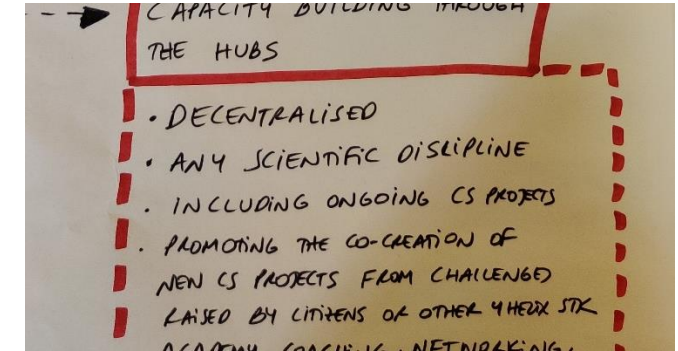 CAPACITY BUILDING THROUGH
THE HUBS
· DECENTRALISED
· ANY SCIENTIFIC DISCIPLINE
· INCLUDING ONGOING CS PROJECTS
· PROMOTING THE CO-CREATION OF
NEW CS PROJECTS FROM CHALLENGES
RAISED BY CITIZENS OR OTHER 4HELIX STK
ACADEMY COACHING, NETWORKING,